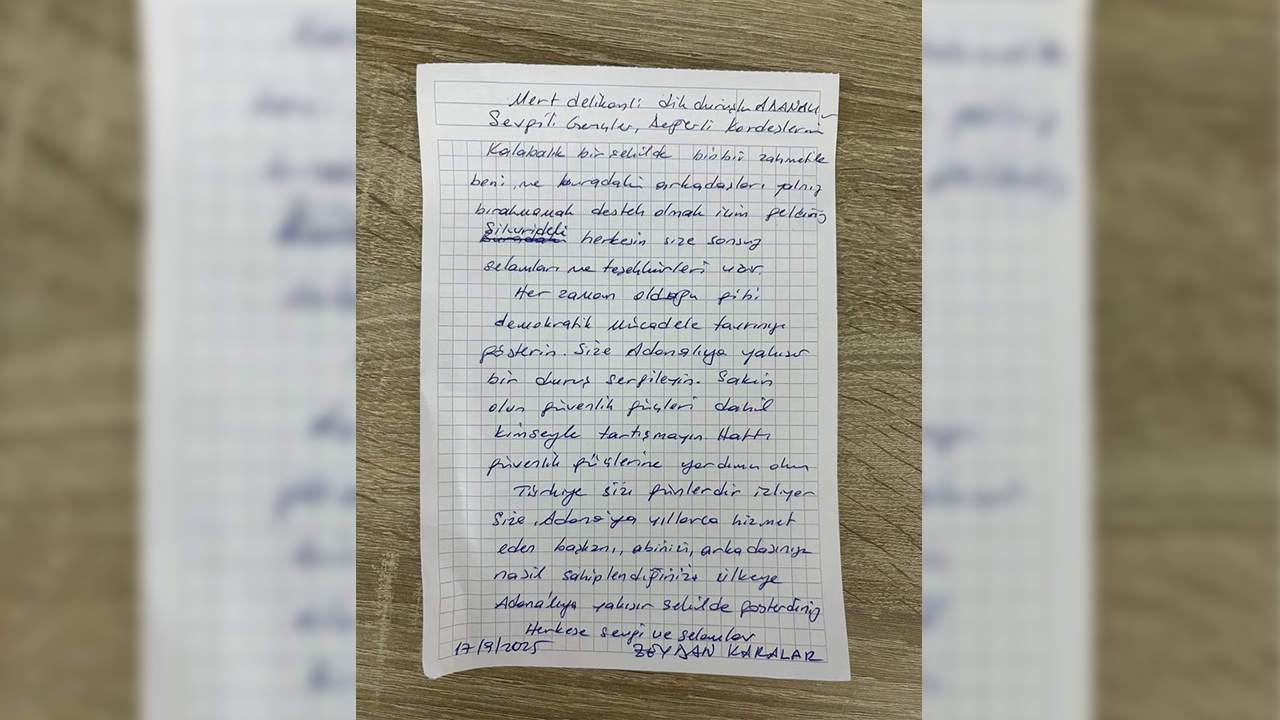 Mert delikanlı dik duruşlu ADANALI
Sevgili Gençler, Değerli Kardeşlerim
Kalabalık bir şekilde binbir zahmetle
beni ve buradaki arkadaşları yalnız
bırakmamak destek olmak için geldiniz
Silivrideki
herkesin size sonsuz
selamları ve teşekkürleri var.
Her zaman olduğu gibi
demokratik mücadele tavrınızı
gösterin. Size Adanalıya yakışır
bir duruş sergileyin. Sakin
olun güvenlik güçleri dahil
kimseyle tartışmayın. Hatta
güvenlik güçlerine yardımcı olun
Türkiye sizi günlerdir izliyor
Size, Adana'ya yıllarca hizmet
eden başkanı, abinizi, arkadaşınızı
nasıl sahiplendiğinizi ülkeye
Adanalıya yakışır şekilde gösterdiniz
Herkese sevgi ve selamlar
17/9/2025 ZEYDAN KARALAR